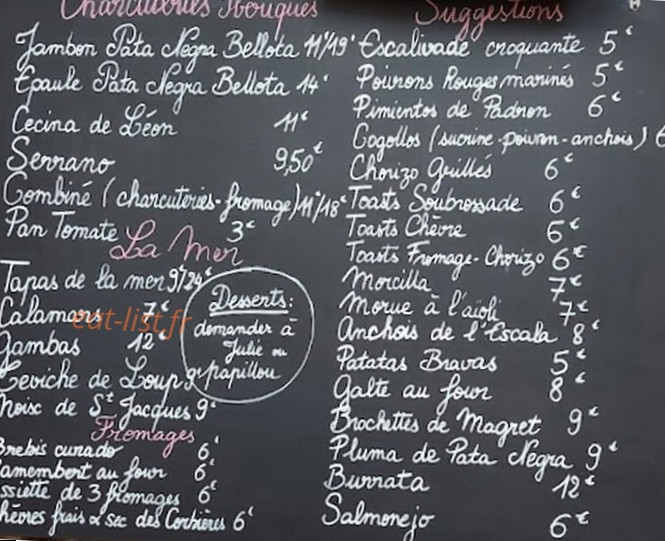 Charcuteries Rouges
Jambon Pata Negra Bellota 11€/19€
Epaule Pata Negra Bellota 14€
Cecina de Léon 11€
Serrano 9,50€
Combiné (charcuteries-fromage) 11€/18€
Pan Tomate 3€
La Mer
Tapas de la mer 9€/24€
Calamars 7€
Gambas 12€
Ceviche de Loup 9€
Noix de St Jacques 9€
Fromages
Brebis curado 6€
Camembert au four 6€
ssiette de 3 fromages 6€
hèvres frais & sec des Corbières 6€
Desserts:
demander à
Julie ou
papillou
Suggestions
Escalivade croquante 5€
Poivrons Rouges marinés 5€
Pimientos de Padron 6€
Cogollos (sucrine-poivron-anchois) 6
Chorizo Grillés 6€
Toasts Soubrossade 6€
Toasts Chèvre 6€
Toasts Fromage-Chorizo 6€
Morcilla 7€
Morue à l'aïoli 7€
Anchois de l'Escala 8€
Patatas Bravas 5€
Galte au four 8€
Brochettes de Magret 9€
Pluma de Pata Negra 9€
Burrata 12€
Salmorejo 6€
eat-list.fr